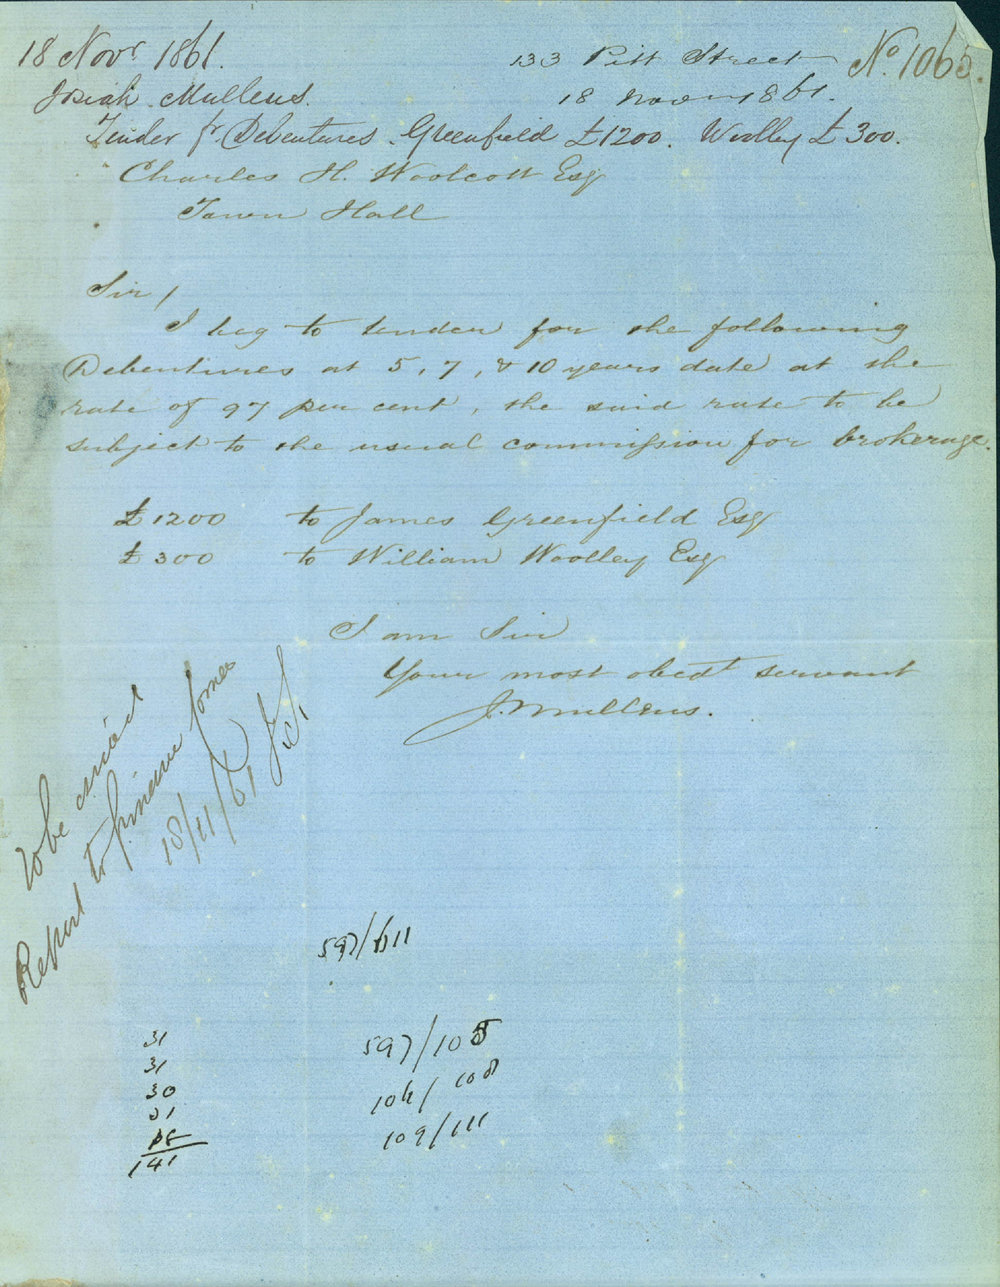 18 Novr 1861.
133 Pitt Street
No. 1065.
Josiah Mullens.
18 Novr 1861.
Tender fr Debentures. Greenfield £1200. Woolley £300.
Charles H. Woolcott Esq
Town Hall
Sir,
I beg to tender for the following
Debentures at 5, 7, & 10 years date at the
rate of 97 per cent, the said rate to be
subject to the usual commission for brokerage.
£1200 to James Greenfield Esq
£300 to William Woolley Esq
I am Sir
Your most obedt servant
J. Mullens.
To be
Report to Finance Comee
18/11/61
597/611
31
31
30
31
18
141
597/105
106/108
109/111